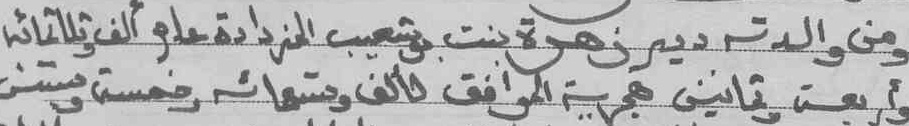 ومن والدته دير زهرة بنت بوشعيب المزدادة عام ألف وثلاثمائه
وأربعة وثمانين هجرية الموافق لألف وتسعمائه وخمسة وستين